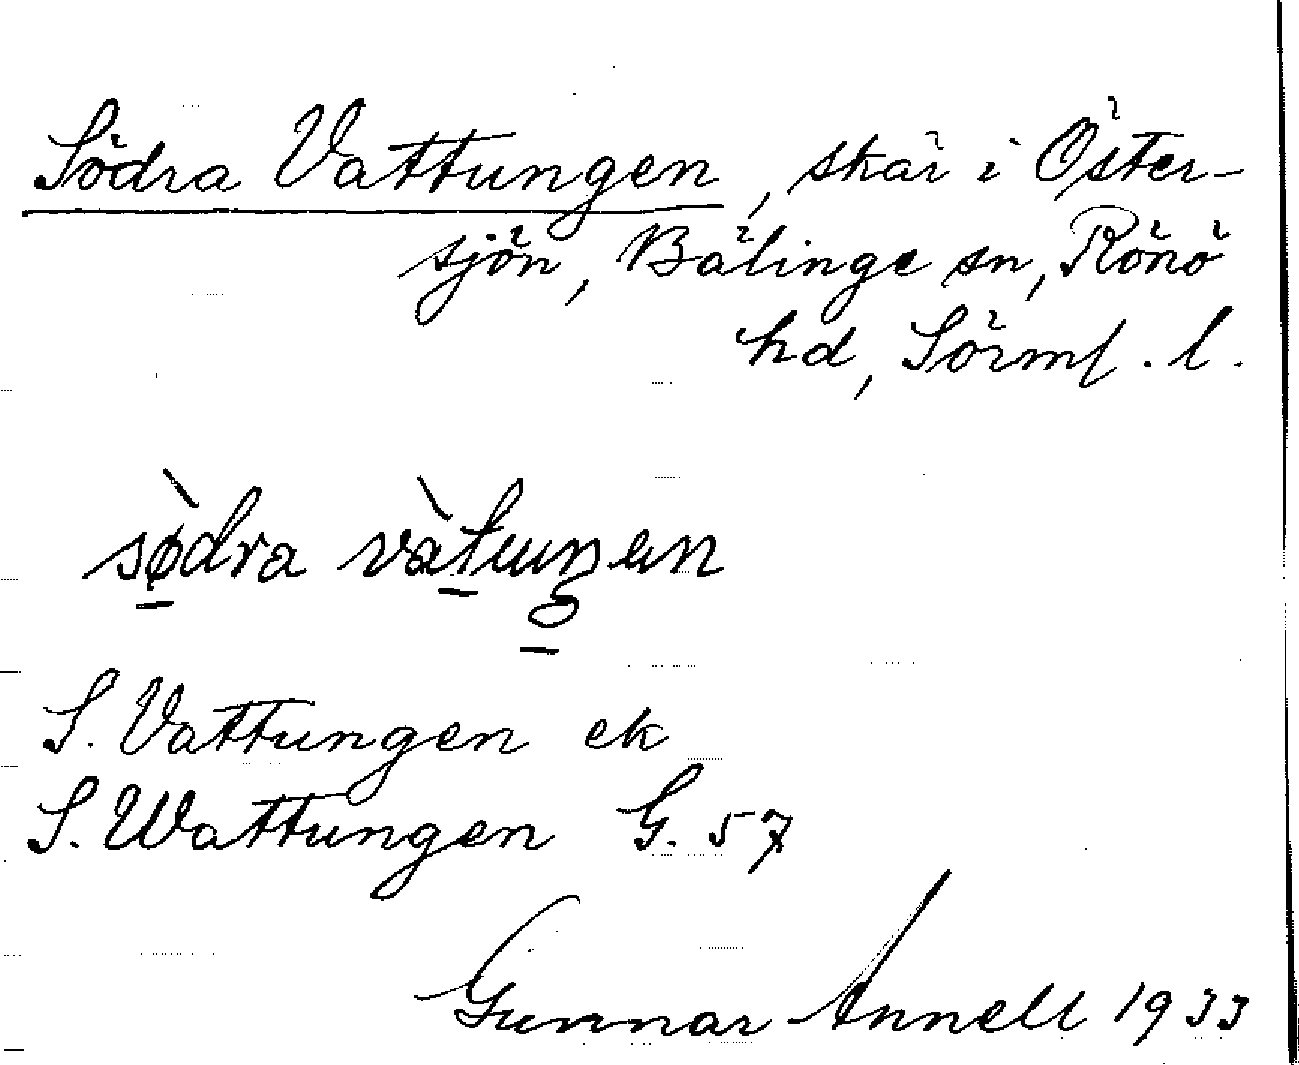 Södra Vattungen, skär i Öster-
sjön, Bälinge sn, Rönö
hd, Sörml. l.
sø̀dra vàtuŋen
S. Vattungen ek
S. Wattungen G. 57
Gunnar Annell 1933